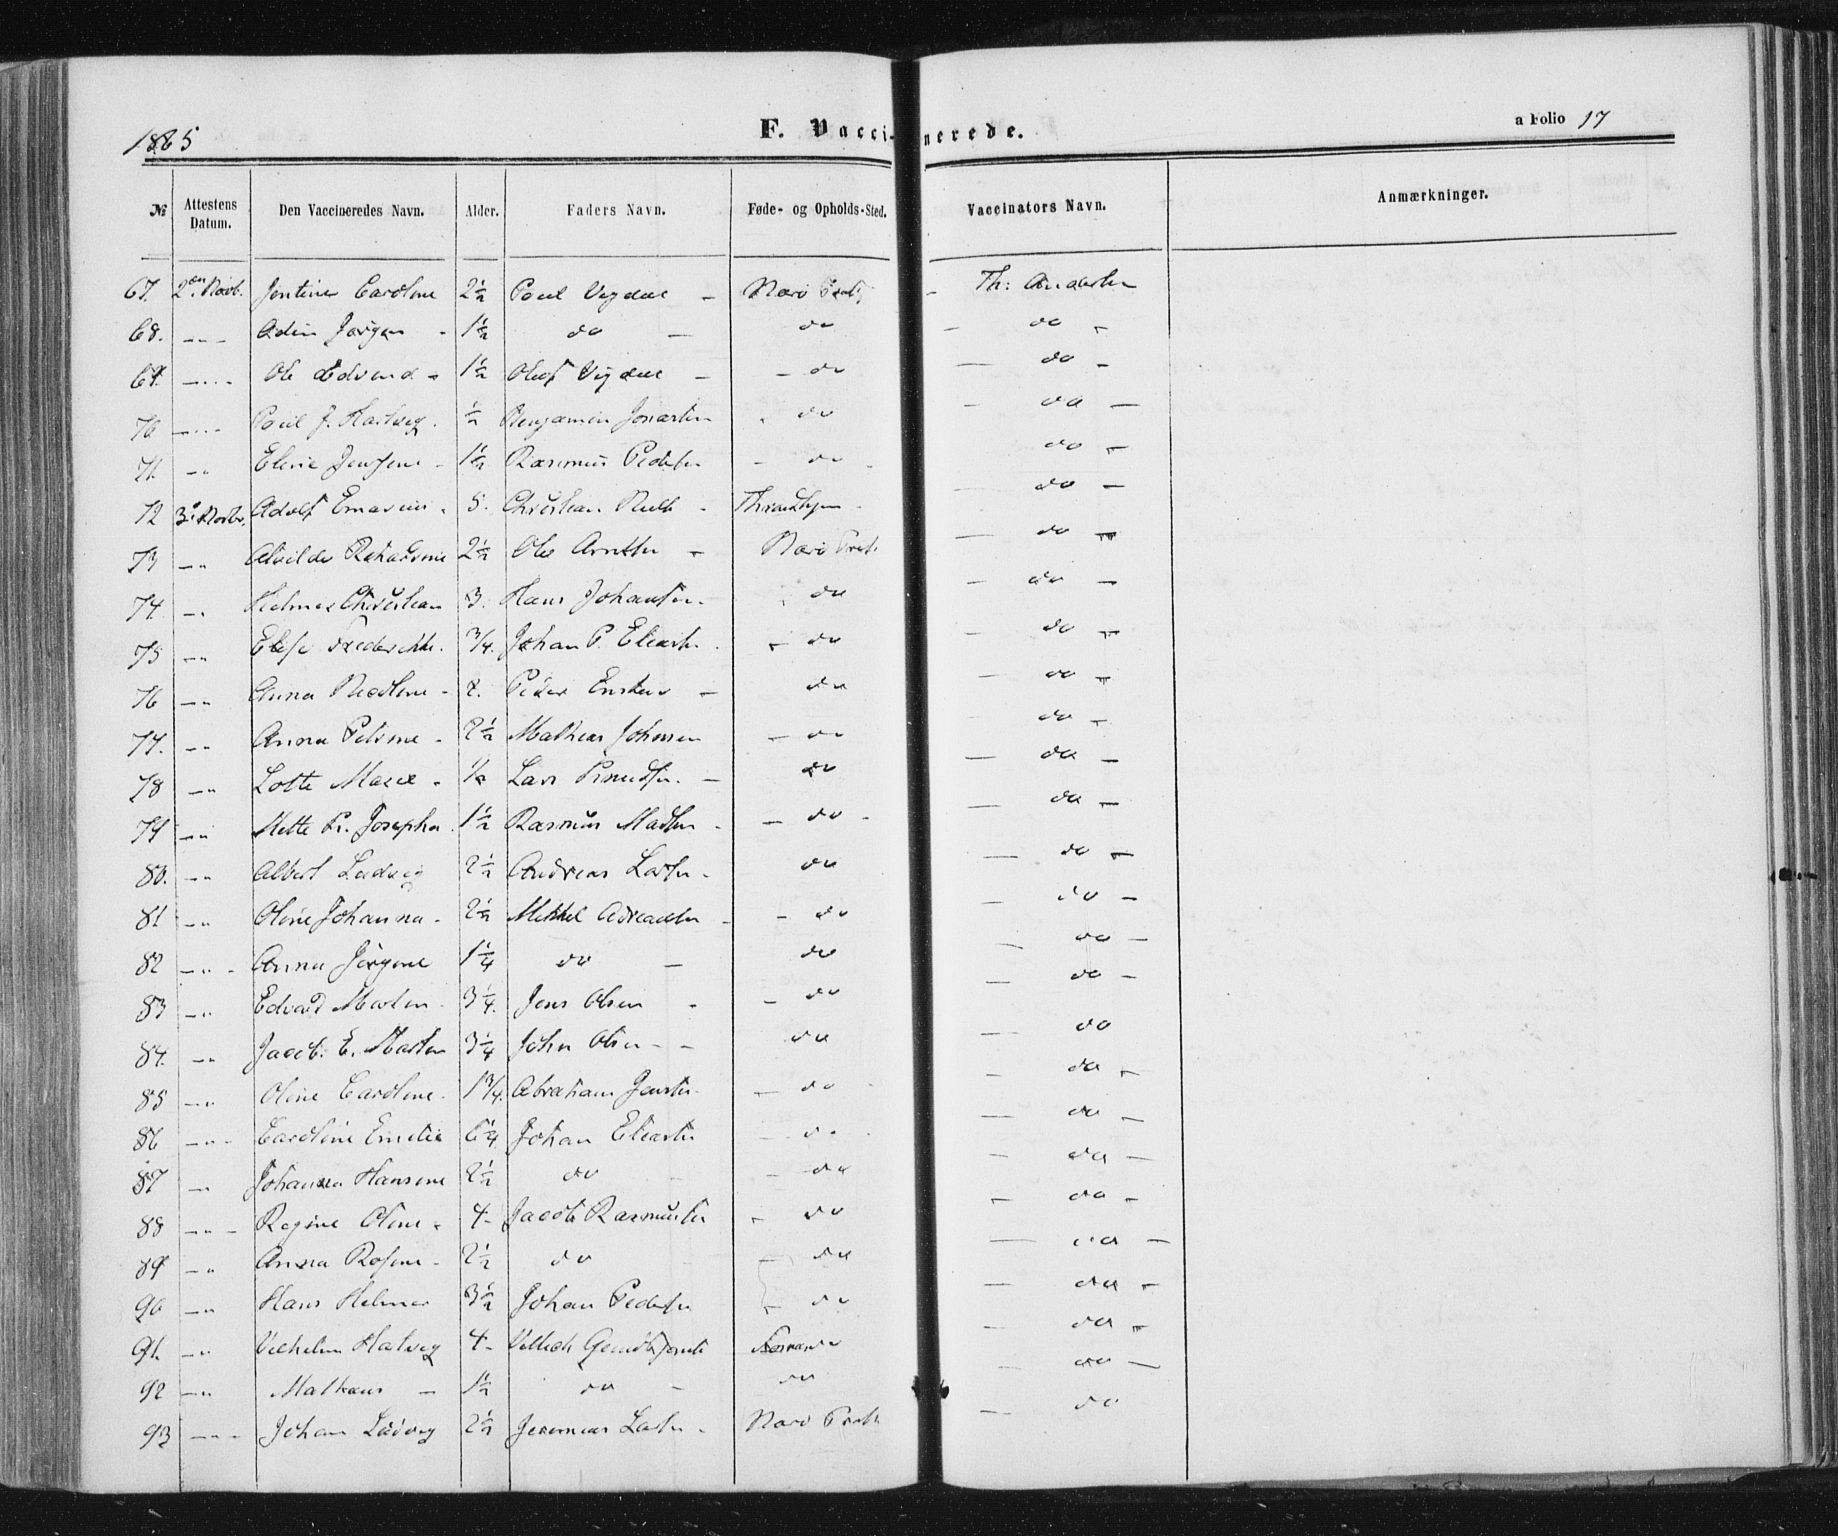 1865 F. Vaccinerede. a Folio 17
№ Attestens Datum. Den Vaccineredes Navn. Alder. Faders Navn. Føde- og Opholds-Sted. Vaccinators Navn. Anmærkninger.
67. 2den Novb. Caroline 2½ Poul Vigdal – Nærö – Th: Andersen
68. – " – Jørgen - 1½ do – do – do –
69. – " – Ole Edvard - 1½ Oluf Vigdal – – do – do –
70 – " – Poul J. Hartvig. ½ Benjamin Jonassen - do – do –
71. – " Jensine - 1½ Rasmus Peders. – do – do –
72 3die Novbr. Adolf 5. Christian Throndhjem – do –
73 – " 2½ Ole – Nærö Præst. – do –
74 – " Helmer Christian 3. Hans Johansen. do – do –
75 – " Elise Frederikke. ¾. Johan P. Eliasen – do – do –
76 – " Anna Nicoline - Peder – do – do –
77. – " Anna Petrine - 2½ Mathias Johnsen – do – do –
78 – " Lotte Marie - Lars Knudsen. – do – do –
79 – " Mette P. Josepha 1½ Rasmus Madsen – do - – do –
80. – " Albert Ludvig 2½ Andreas Larsen. do – do –
81 – " Oline Johanna - 2½ Mikkel Adreassen – do – do –
82 – " - Anna Jørgine 1¼ do – do – do –
83 – " Edvard Morten 3¼. Jens Olsen - – do do –
84. – " Jacob. E. Martin 3¼ John Olsen - – do do
85 – " Oline Caroline. 1¾. Abraham Jensen. – do – do –
86 – " - Caroline Emelie 6¼ Johan Eliasen – do – do –
87 – " Johanna Hansine 2½ do – do – do –
88 – " – Regine Oline - 4- Jacob Rasmusen – do – do –
89 – " Anna Rosine - 2½ do – do – do –
90 – " Hans Helmer 3½ Johan Pedersen – do – do –
91. – " Vilhelm Hartvig 4- do –
92 – " Mathias – 1½ do – do – do –
93 – " – Johan Ludvig 2½ Jeremias Larsen. Nærö Præst. – do